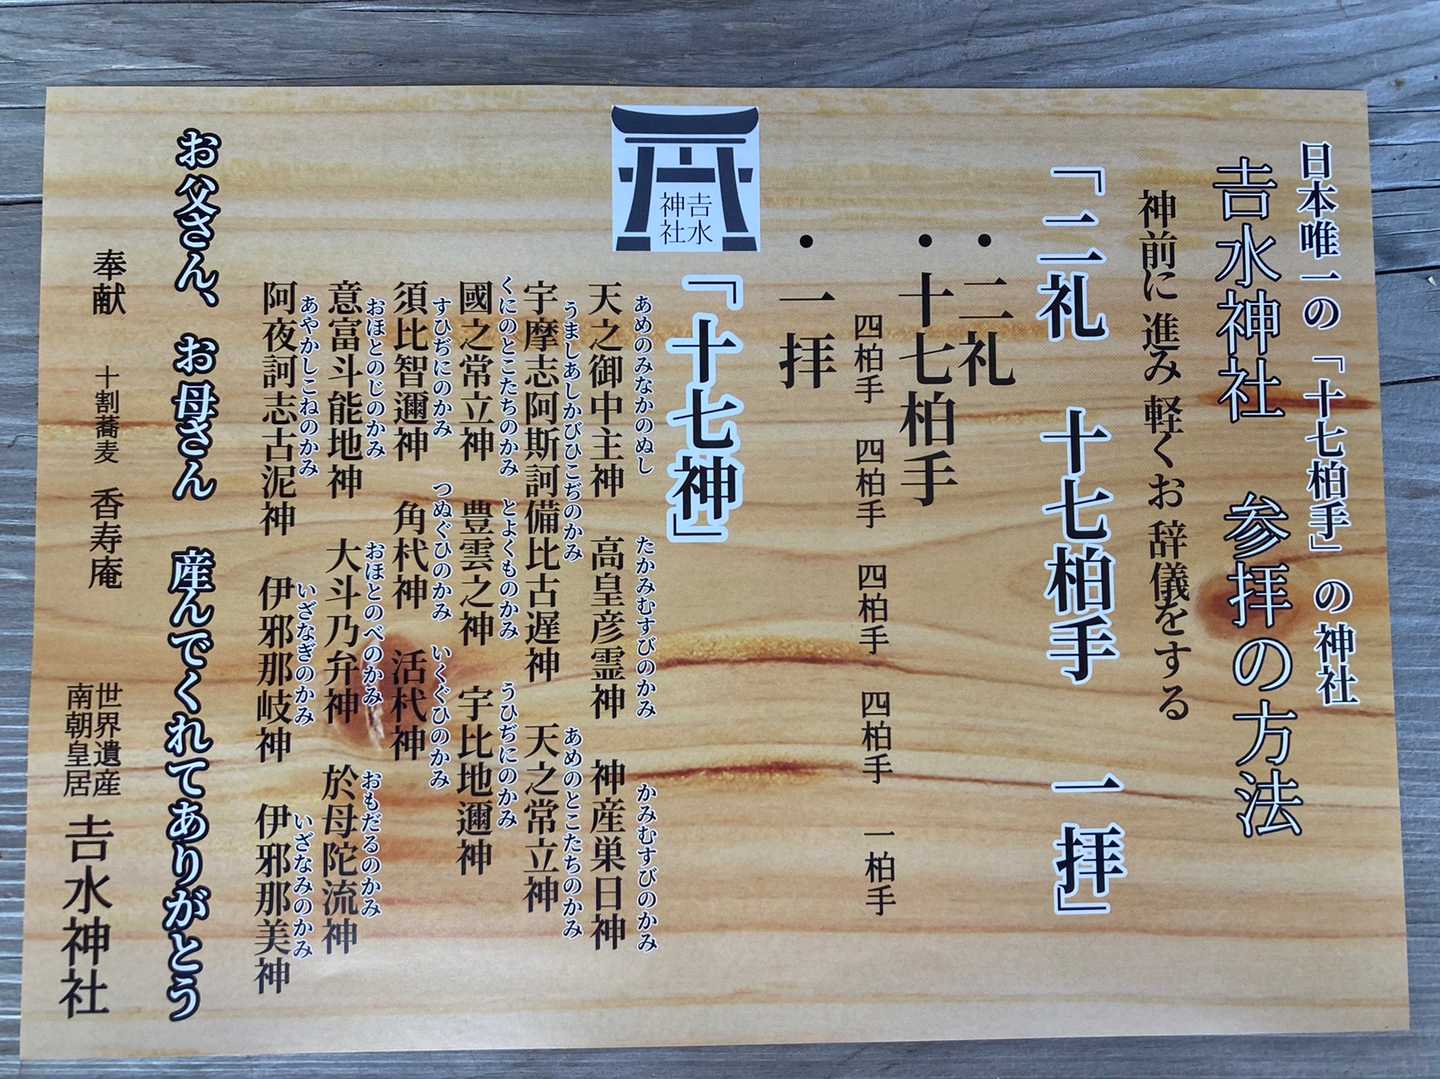 日本唯一の「十七柏手」の神社
𠮷水神社 参拝の方法
神前に進み軽くお辞儀をする
「二礼 十七柏手 一拝」
・二礼
・十七柏手
四柏手 四柏手 四柏手 四柏手 一柏手
・一拝
𠮷水
神社
「十七神」
あめのみなかのぬし たかみむすびのかみ かみむすびのかみ
天之御中主神 高皇彦霊神 神産巣日神
うましあしかびひこぢのかみ あめのとこたちのかみ
宇摩志阿斯訶備比古遅神 天之常立神
くにのとこたちのかみ とよくものかみ うひぢにのかみ
國之常立神 豊雲之神 宇比地邇神
すひぢにのかみ つぬぐひのかみ いくぐひのかみ
須比智邇神 角杙神 活杙神
おほとのじのかみ おほとのべのかみ おもだるのかみ
意富斗能地神 大斗乃弁神 於母陀流神
あやかしこねのかみ いざなぎのかみ いざなみのかみ
阿夜訶志古泥神 伊邪那岐神 伊邪那美神
お父さん、お母さん 産んでくれてありがとう
奉献 十割蕎麦 香寿庵
世界遺産
南朝皇居
𠮷水神社